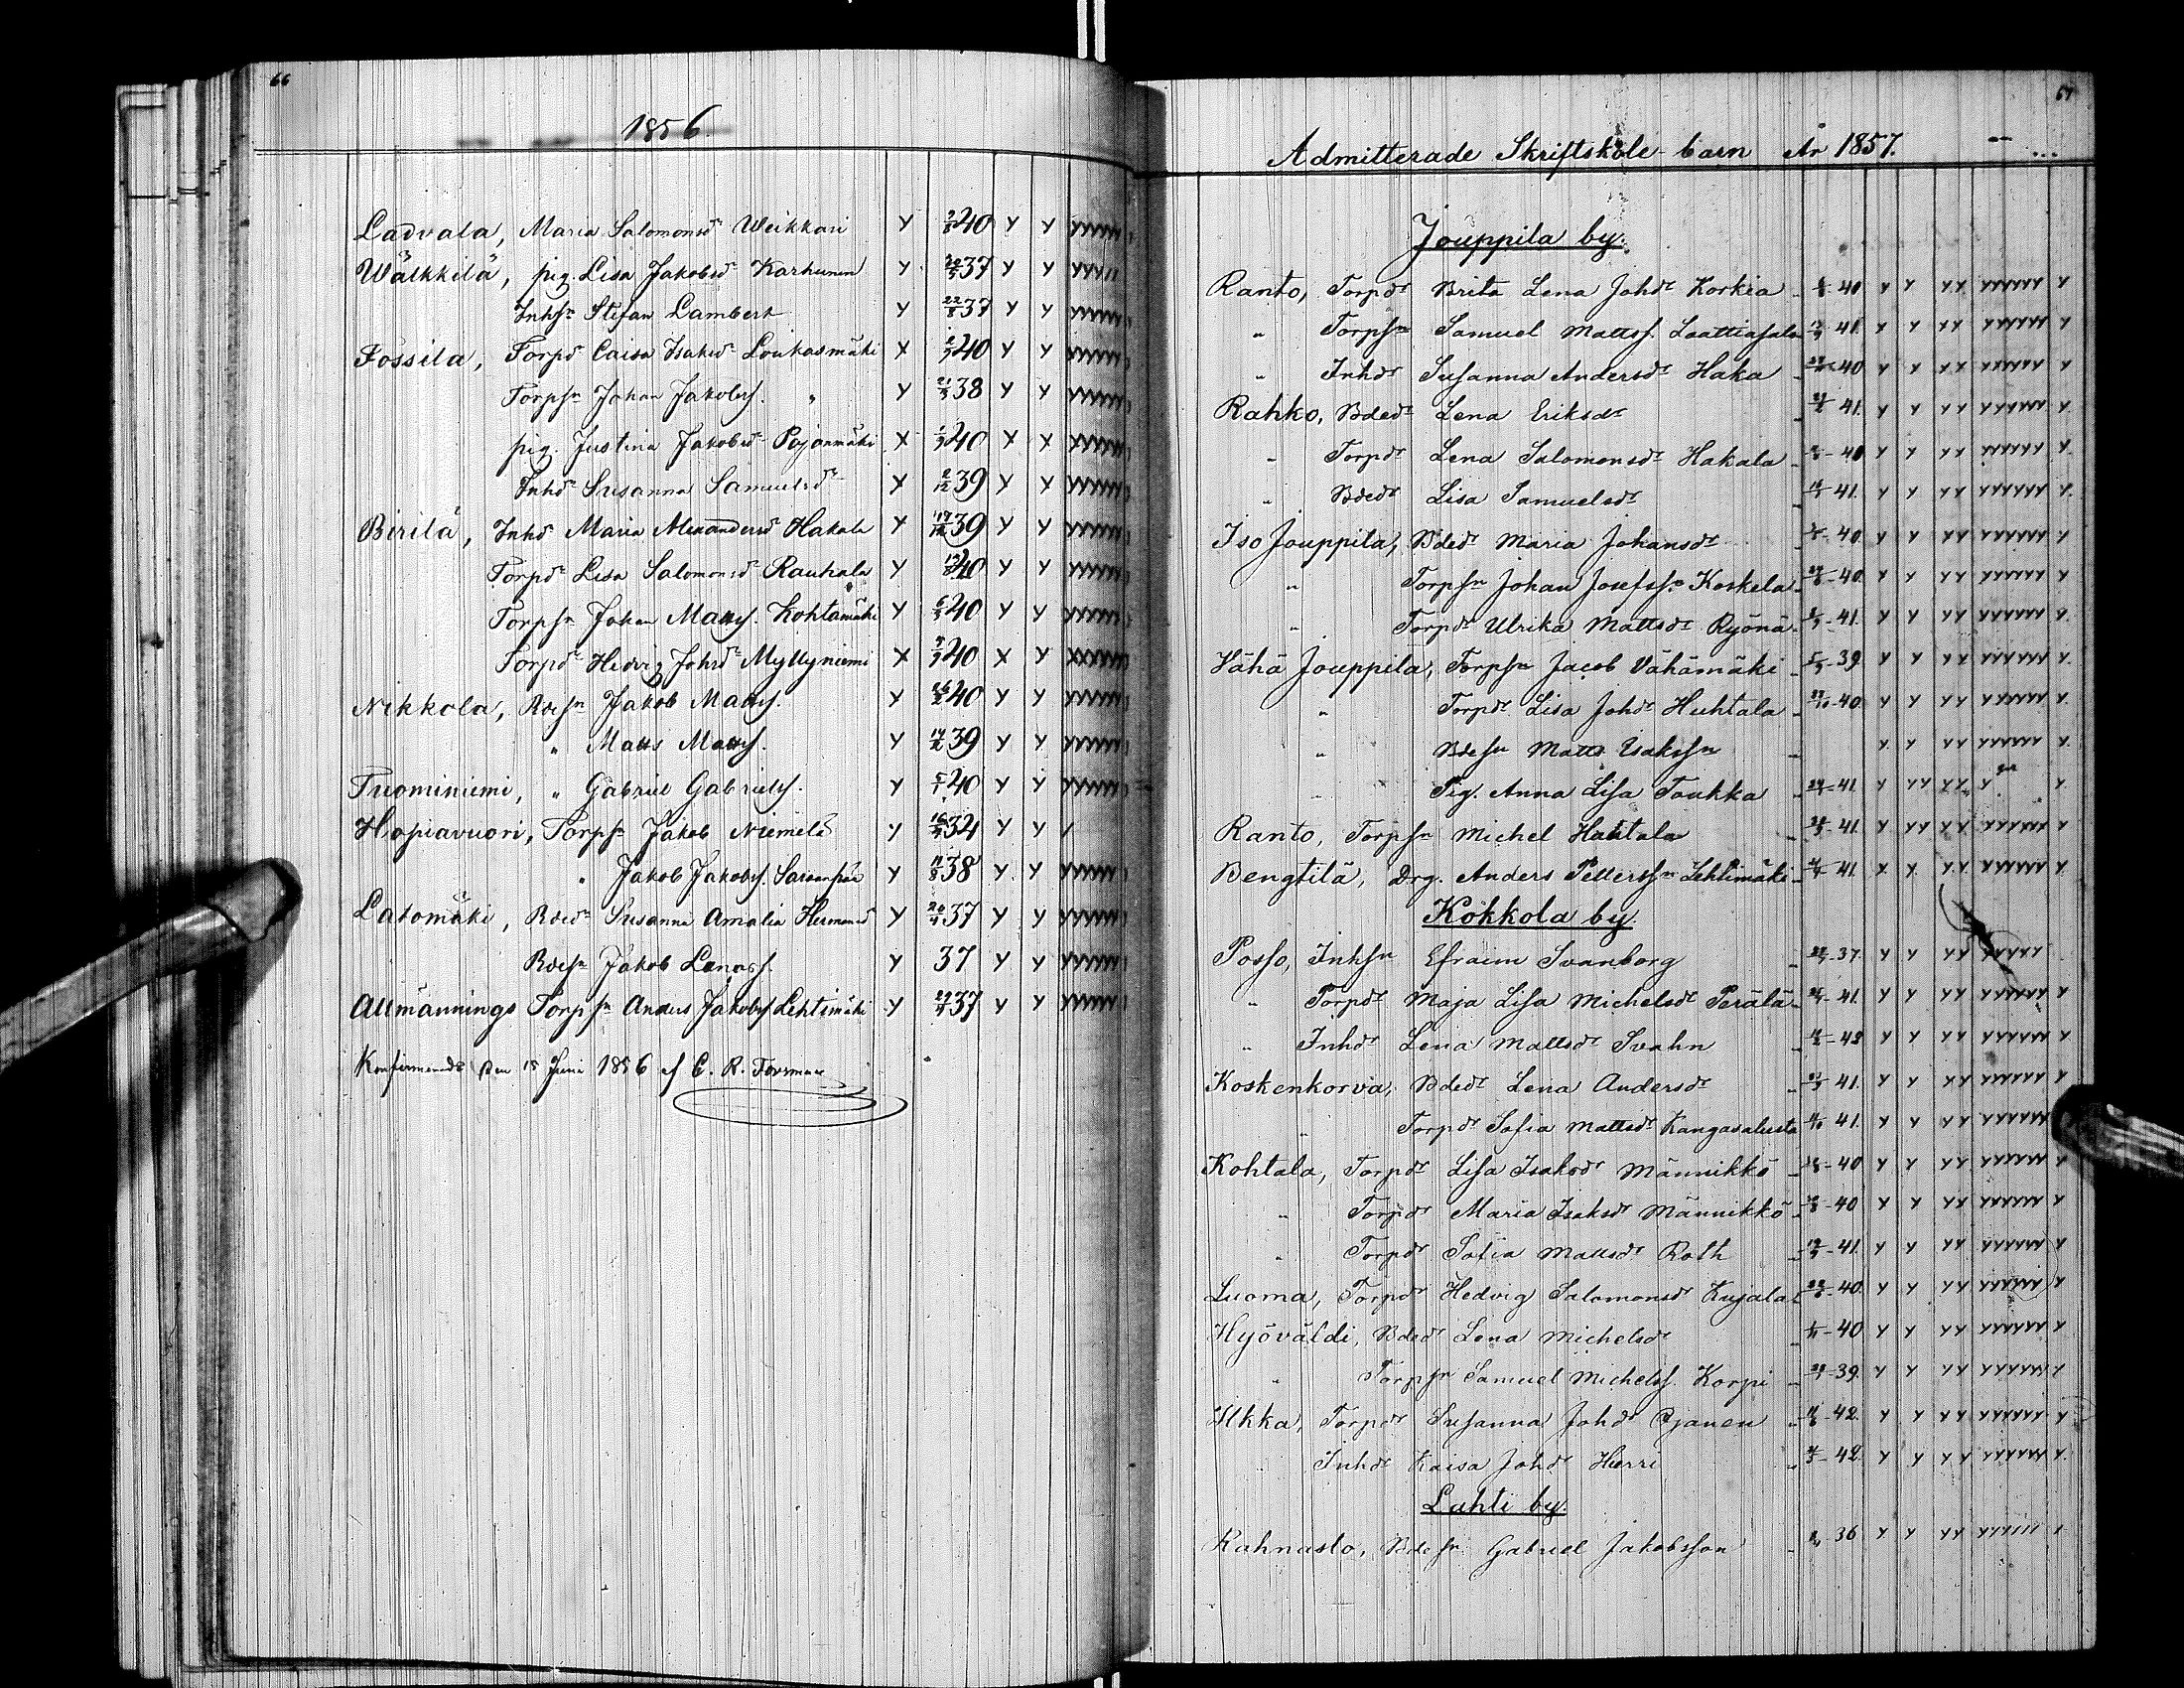 66
1856.
Ladvala, Maria Salomonsdr Weikkari Y 40 Y Y YYYYYY
Wälkkilä, pig. Lisa Jakobsdr Karhunen Y 37 Y Y YYYYY
Inhsn Stefan Lambert Y 37 Y Y YYYYYY
Fossila, Torpd Caisa Isaksdr Loukasmäki X 40 Y Y YYYYYY
Torpsn Johan Jakobss. " Y 38 Y Y YYYYYY
pig. Justina Jakobsdr Pojanmäki X 40 X X XXXXXX
Inhdr Susanna Samuelsdr X 2/12 39 Y X YYYYYY
Birilä, Inhd Maria Alexandersd Hakala X 39 Y Y YYYYYY
Torpdr Lisa Salomonsdr Rauhala Y 40 Y Y YYYYYY
Torpsn Johan Matts. Kohtamäki Y 40 Y Y YYYYYY
Torpdr Hedvig Johsdr Myllyniemi X 40 X Y XXXXXX
Nikkola, Bdesn Jakob Matts. Y 40 Y Y YYYYYY
" Matts Matts. Y 39 Y Y YYYYYY
Tuominiemi, " Gabriel Gabrielss. Y 40 Y Y YYYYYY
Hopiavuori, Torpsn Jakob Niemelä Y 34 Y Y /
" Jakob Jakobss. Y 38 Y Y YYYYYY
Latomäki, Bdedr Susanna Amalia Hermansd Y 37 Y Y YYYYYY
Bdesn Jakob Y 37 Y Y YYYYYY
Allmännings Torpsn Anders Jakobss Lehtimäki Y 37 Y Y YYYYYY
Konfirmerade den 15 Juni 1856 af C. R. Forsman
67
Admitterade Skriftskole-barn År 1857.
Jouppila by.
Ranto, Torpdr Brita Lena Johdr Korkia 40 Y Y YY YYYYYY Y
" Torpsn Samuel Mattss. Laattiasalo 41 Y Y YY YYYYYY Y
" Inhdr Susanna Andersdr Haka 40 Y Y YY YYYYYY Y
Rahko, Bdedr Lena Eriksdr 41 Y Y YY YYYYYY Y
" Torpdr Lena Salomonsdr Hakala 40 Y Y YY YYYYYY Y
" Bdedr Lisa Samuelsdr 41 Y Y YY YYYYYY Y
Iso Jouppila, Bdedr Maria Johansdr 40 Y Y YY YYYYYY Y
" Torpsn Johan Josefssn Koskela 40 Y Y YY YYYYYY Y
" Torpdr Ulrika Mattsdr Ryönä 41 Y Y YY YYYYYY Y
Vähä Jouppila, Torpsn Jacob Vähämäki 39 Y Y YY YYYYYY Y
" Torpdr Lisa Johdr Huhtala 40 Y Y YY YYYYYY Y
" Bdesn Matts Isakssn Y Y YY YYYYYY Y
" Pig. Anna Lisa Toukka 41 Y YY YY Y Y
Ranto, Torpsn Michel Hautala 41 Y YY YY YYYYYY Y
Bengtilä, Drg. Anders Petterssn Lehtimäki 41 Y Y YY YYYYYY Y
Kokkola by.
Posso, Inhsn Efraim Svanborg 37 Y Y YY YYYYY
" Torpdr Maja Lisa Michelsdr Perälä 41 Y Y YY YYYYYY Y
" Inhdr Lena Mattsdr Svahn Y Y YY YYYYYY Y
Koskenkorva, Bdedr Lena Andersdr 41 Y Y YY YYYYYY Y
" Torpdr Sofia Mattsdr Kangasalusta 41 Y Y YY YYYYYY
Kohtala, Torpdr Lisa Isaksdr Männikkö 40 Y Y YY YYYYYY Y
" Torpdr Maria Isaksdr Männikkö 40 Y Y YY YYYYYY Y
" Torpdr Sofia Mattsdr Roth 41 Y Y YY YYYYYY Y
Luoma, Torpdr Hedvig Salomonsdr Kujala 40 Y Y YY YYYYYY Y
Hyöväldi, Bdedr Lena Michelsdr 40 Y Y YY YYYYYY Y
" Torpsn Samuel Michelss. Korpi 39 Y Y YY YYYYYY Y
Ilkka, Torpdr Susanna Johdr 42 Y Y YY YYYYYY Y
" Inhdr Kaisa Johdr Harri 42 Y Y YY YYYYYY Y
Lahti by.
Rahnasto, Bdesn Gabriel Jakobsson 36 Y Y YY